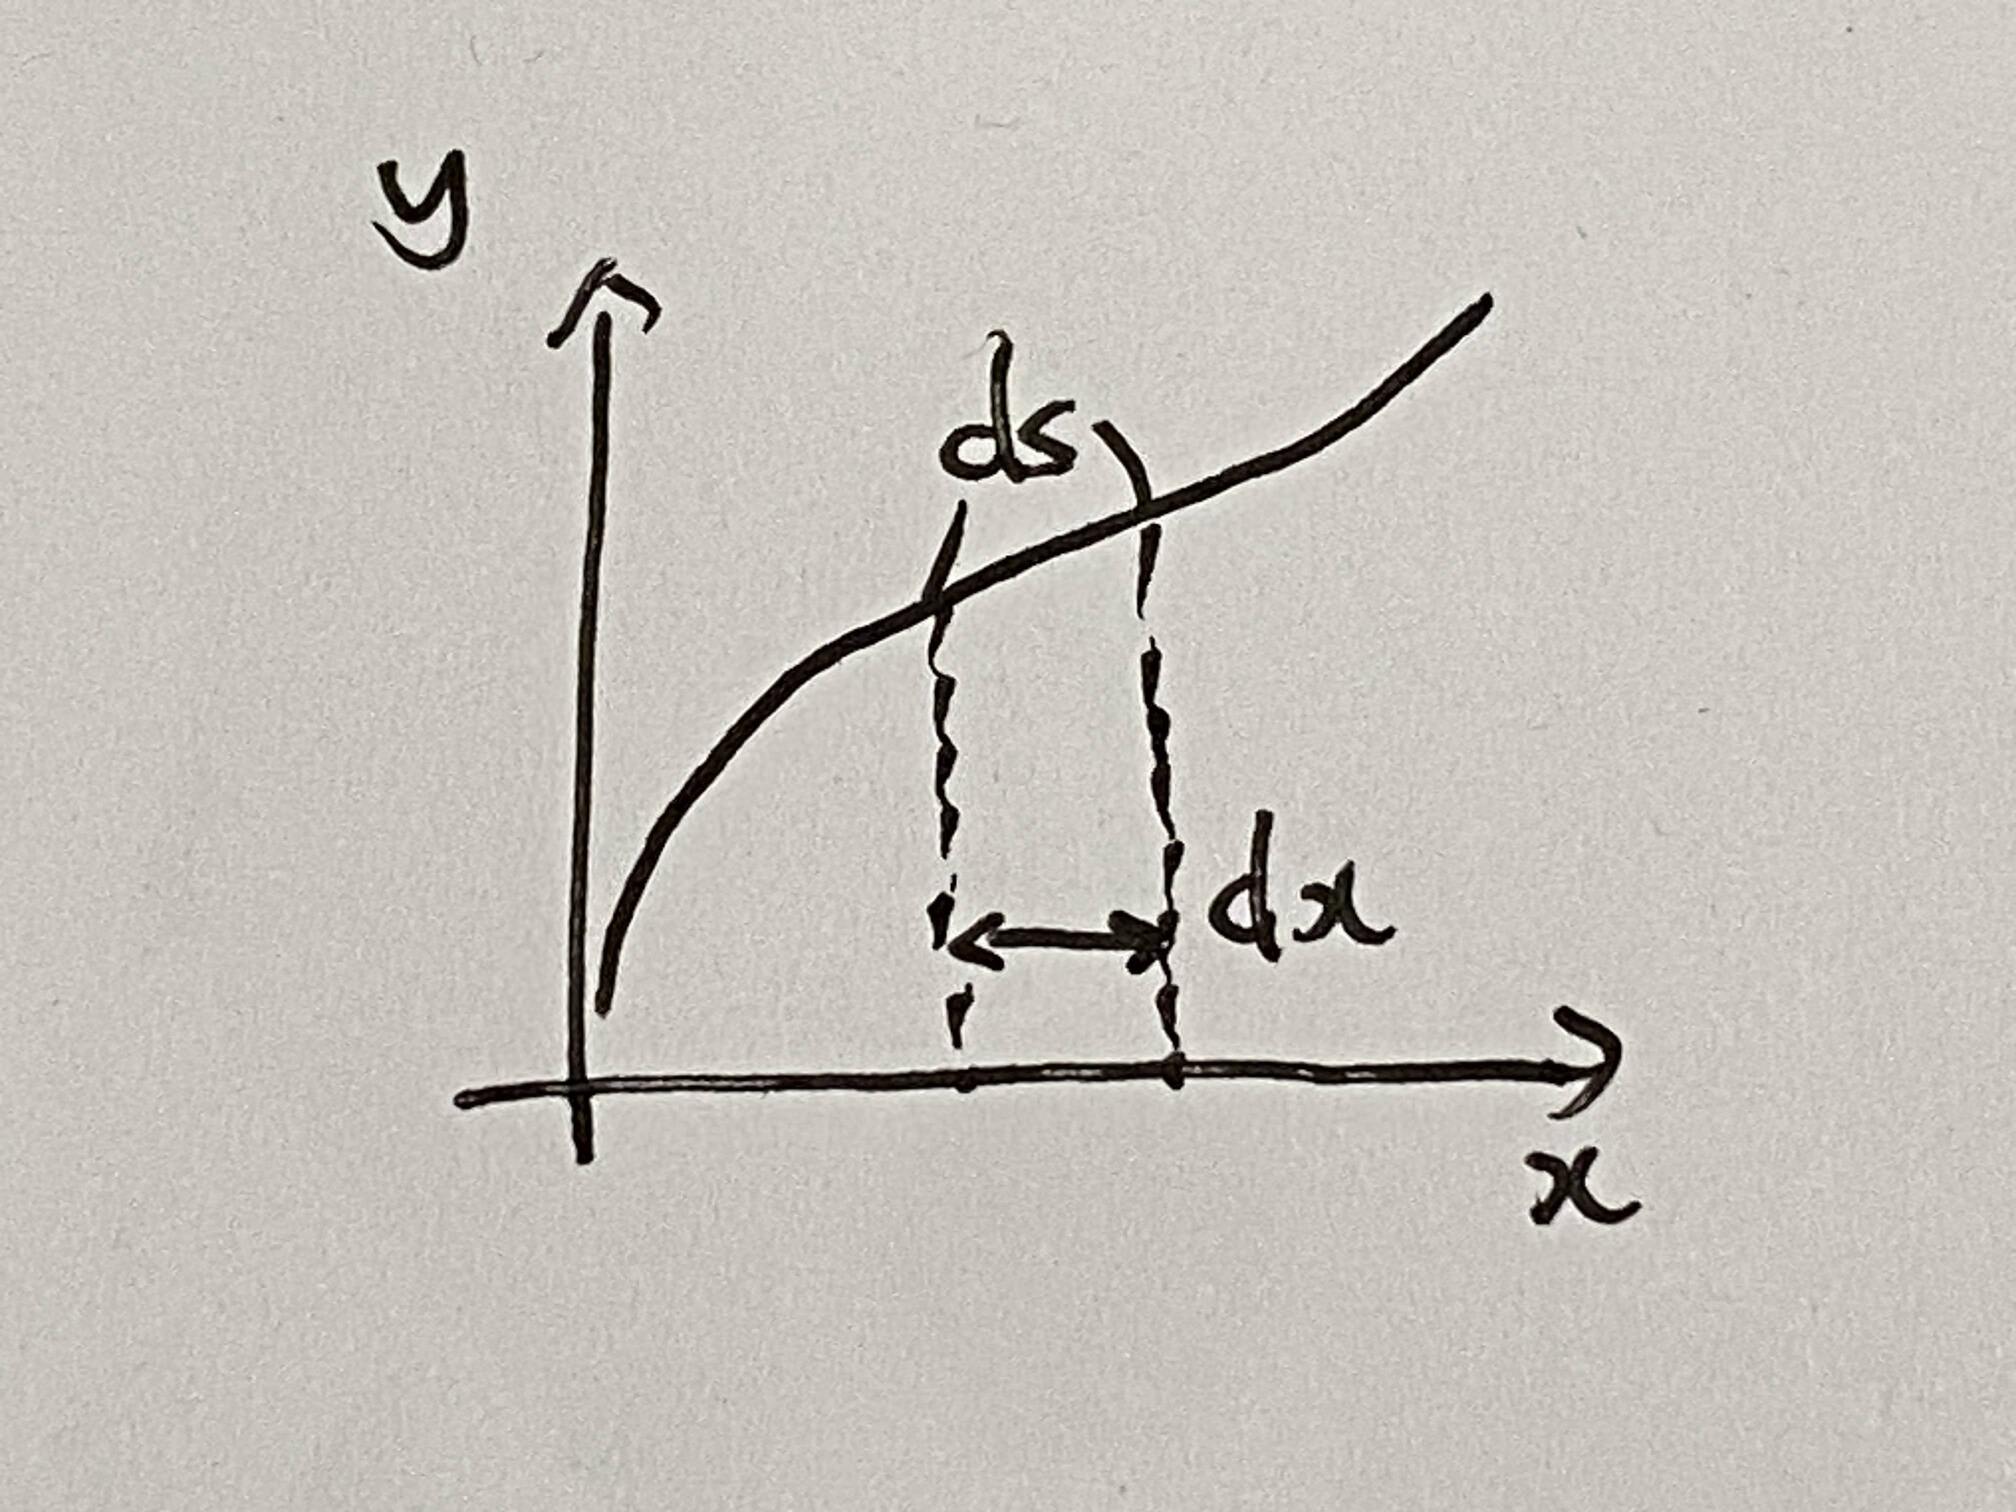 y
ds
dx
x